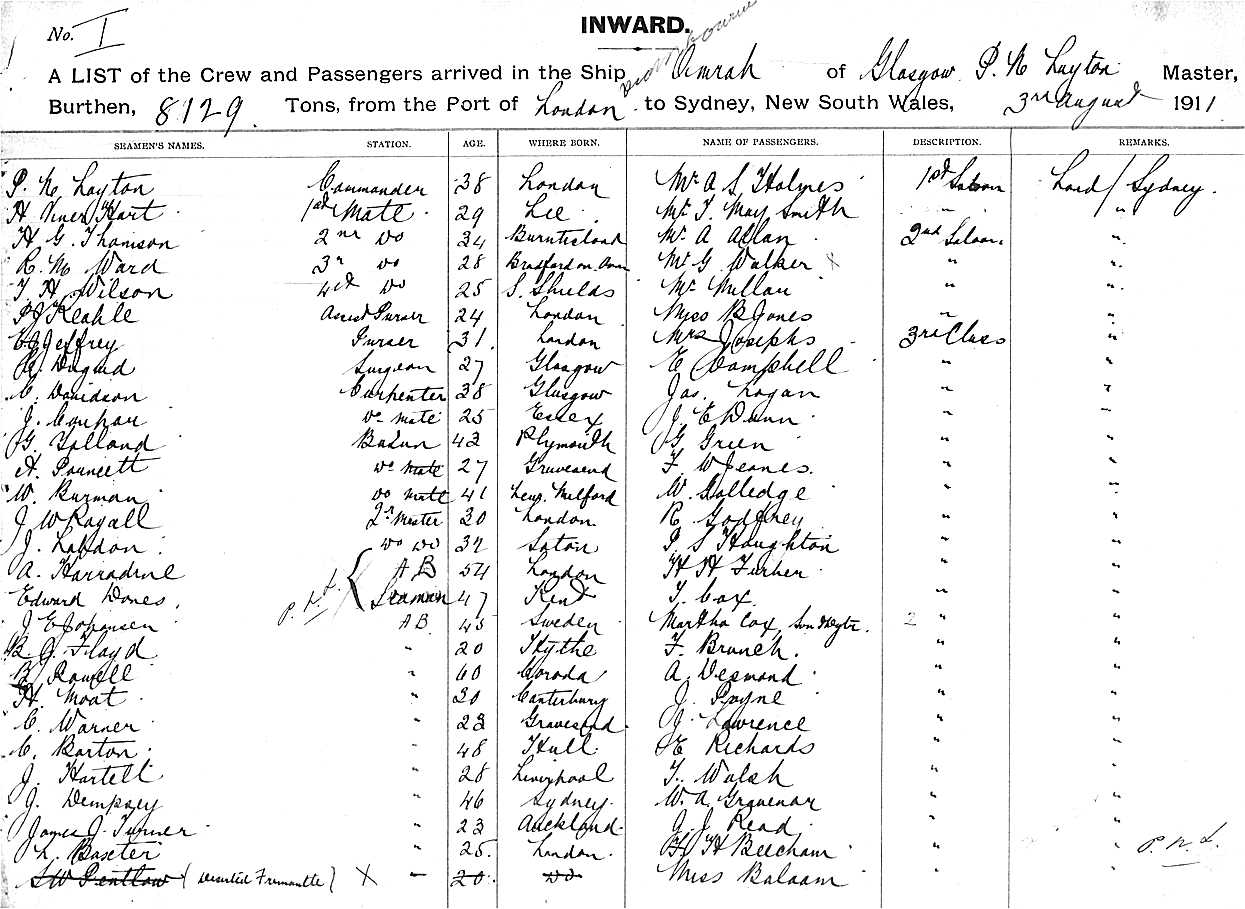 No. I INWARD.
A LIST of the Crew and Passengers arrived in the Ship Omrah of Glasgow P. N Layton Master,
Burthen, 8129 Tons, from the Port of London to Sydney, New South Wales, 3rd August 1911
SEAMEN'S NAMES. STATION. AGE. WHERE BORN. NAME OF PASSENGERS. DESCRIPTION. REMARKS.
P. N Layton Commander 38 London Mr A S Holmes 1st Saloon Land / Sydney.
H Viner Hart 1st Mate 29 Lee Mr T. May Smith " "
H G. Thomson 2nd Do 34 Burntisland Mr A Allan 2nd Saloon. "
R. N Ward 3r do 28 Bradford on Avon Mr G Walker x " "
T. H Wilson 4th Do 25 S. Shields Mr Millan " "
Keable Assist Purser 24 London Miss B Jones " "
Jeffrey Purser 31 London Mrs Josephs 3rd Class "
Duguid Surgeon 27 Glasgow E Campbell " "
C. Davidson Carpenter 38 Glasgow Jas. Logan " "
J. Do Mate 25 Essex J. E Dunn " "
G. Yolland 42 Plymouth G Green " "
A. Pouncett Do Mate 27 Gravesend F. W Jeanes. " "
W. Burman do Mate 41 Long Melford W. Golledge " "
J W 2nr Master 30 London R Godfrey " "
J. do do 32 London P S Houghton " "
A. Harradine A B 54 London H H Furher " "
Edward Jones. P.N.L. { Seaman 47 Kent T. Cox " "
J E Johansen A B 45 Sweden Martha Cox, Son & dgtr. 2 " "
B. G. Floyd " 20 Hythe F. Branch. " "
Rowell " 60 A. Desmond " "
H. Moat " 30 Canterbury J. Payne " "
C. Warner " 23 Gravesend J. Lawrence " "
C. Barton " 48 Hull E Richards " "
J. Hartell " 28 Liverpool T. Walsh " "
J. Dempsey " 46 Sydney W. A Gravenor " "
James J. Turner " 23 Auckland J. J. Read " "
L. Baxter " 25 London F H Beecham " P.N.L.
S W Pentlow (Deserted Fremantle) X " 20 do Miss Balaam " "